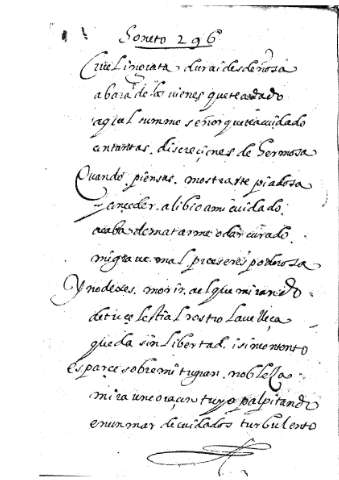 Soneto 296
Cruel ingrata, dura i desdeñosa
abara de los vienes que te a dado
aquel summe señor que te a cuidado
en tantas. discreçiones de hermosa
Quando piensas. mostrarte piadosa
y conçeder. alibio a mi cuidado.
acaba de matarme o dar curado
mi graue mal pues eres poderosa
Y no dexes. morir. a el que mirando
de tu çelestial rostro la velleça
queda sin libertad. i
esparçe sobre mi tu gran. nobleça
mira un coraçon tuyo palpitando
en un mar de cuidados turbulento